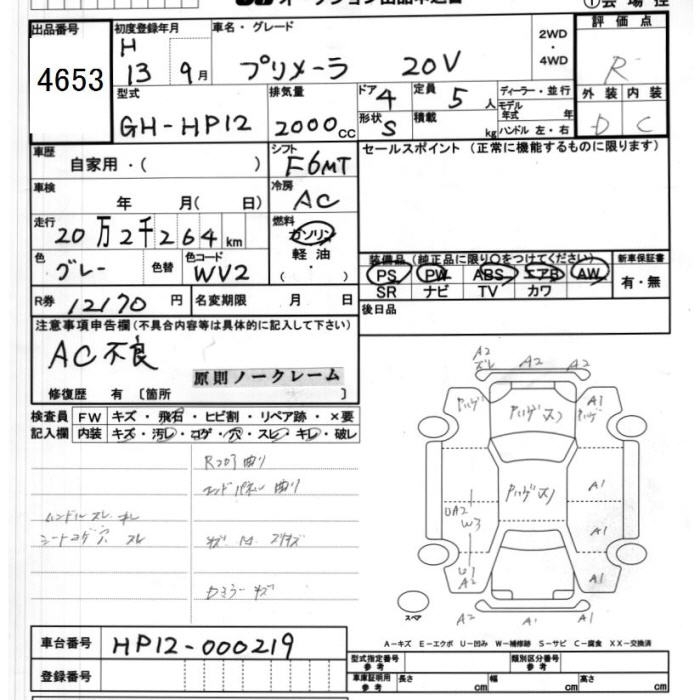 出品番号
4653
初度登録年月
H
13 9月
車名・グレード
プリメーラ 20V
2WD
・
4WD
評価点
R
型式
GH-HP12
排気量
2000cc
ドア 4
定員 5人
形状 S
積載 kg
ディーラー・並行
モデル年式 年
ハンドル 左・右
外装 内装
D C
車歴
自家用・( )
シフト
F6MT
車検
年 月( 日)
冷房
AC
走行
20万2千264km
燃料
ガソリン
軽油
( ・ )
色
グレー
色替
色コード
WV2
R券 12170円
名変期限 月 日
セールスポイント(正常に機能するものに限ります)
装備品(純正品に限り○をつけてください)
PS PW ABS エアB AW
SR ナビ TV カワ
新車保証書
有・無
後日品
注意事項申告欄(不具合内容等は具体的に記入して下さい)
AC不良
原則ノークレーム
修復歴 有〔箇所 〕
検査員記入欄
FW キズ・飛石・ヒビ割・リペア跡・×要
内装 キズ・汚レ・コゲ・穴・スレ・キレ・破レ
Rコア曲り
エンドパネル曲り
ハンドルスレ キレ
シートコゲ穴 スレ
キズ
Dミラーキズ
A2
スレ
A2
A2
ハゲ
ハゲ ス
A1
ハゲ
ハゲ ス
A1
UA2
W3
A1
U1
A2
A1
スペア
A2
A1
A1
A-キズ E-エクボ U-凹み W-補修跡 S-サビ C-腐食 XX-交換済
車台番号 HP12-000219
登録番号
型式指定番号
参考
類別区分番号
参考
車庫証明用
参考
長さ cm
幅 cm
高さ cm